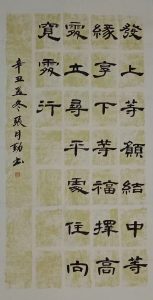 發上等願結中等
緣享下等福擇高
處立尋平處住向
寬處行
辛丑孟冬張月書